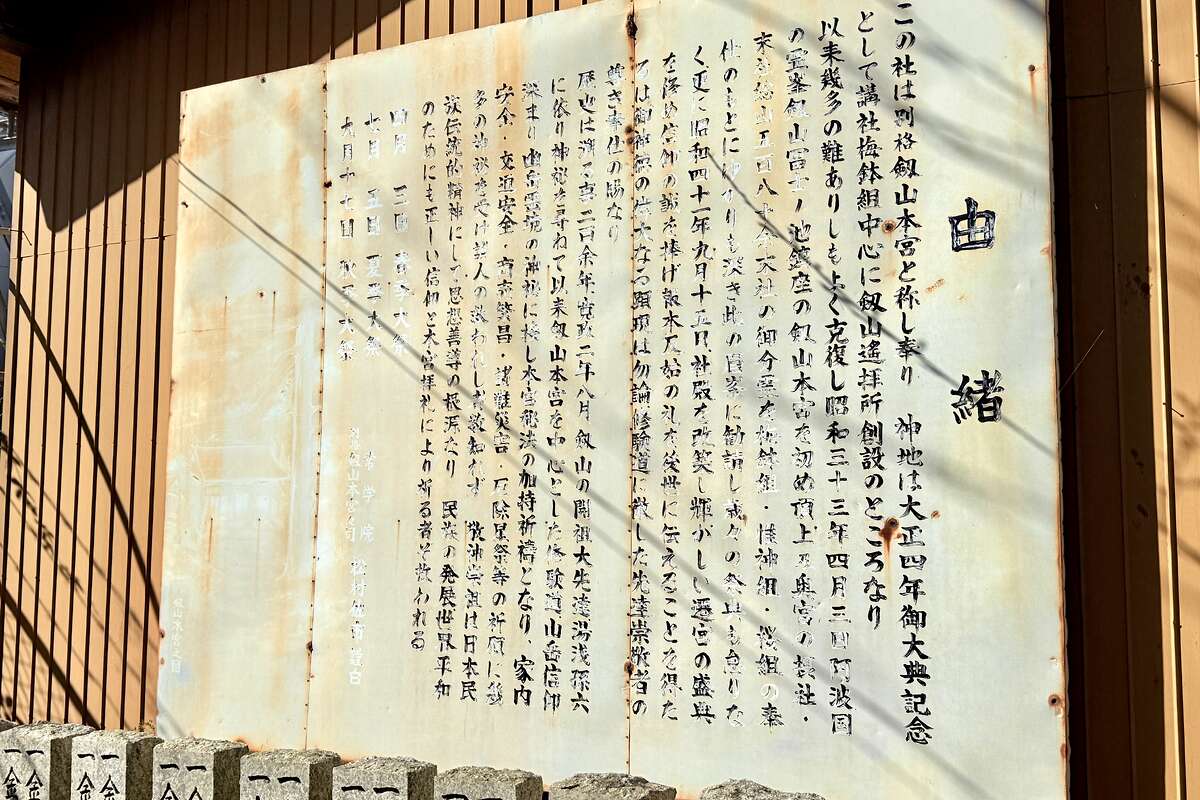 由緒
この社は別格劔山本宮と称し奉り 神地は大正四年御大典記念
として講社梅鉢組中心に劔山遙拝所創設のところなり
以来幾多の難ありしもよく克復し昭和三十三年四月三日阿波国
の霊峯劔山富士ノ池鎮座の劔山本宮を初め頂上乃奥宮の摂社・
末社総山五百八十年大社の御分霊を梅鉢組・佳神組・桜組の奉
仕のもとに
く更に昭和四十一年九月十五日社殿を改築し輝かしい遷宮の盛典
を修め信仰の誠を捧げ報本反始の礼を後世に伝えることを得た
るは御神徳の偉大なる顕現は勿論修験道に徹した先達崇敬者の
尊き奉仕の賜なり
歴史は溯る事二百余年寛政二年八月劔山の開祖大先達湯浅孫六
に依り神秘を尋ねて以来劔山本宮を中心とした修験道山岳信仰
深まり 幽岳霊境の神秘に接し本宮秘法の加持祈禱となり、家内
安全・交通安全・商売繁昌・諸難災害・厄除星祭等の祈願に幾
多の神秘を受け芸人の救われし事数知らず 敬神崇祖は日本民
族伝統的精神にして思想善導の根源なり 民族の発展世界平和
のためにも正しい信仰と本宮拝礼により祈る者ぞ救われる
四月 三日 春季大祭
七月 五日 夏季大祭
九月十七日 秋季大祭
常学院
別格劔山本宮宮司
一金 一金
一金 一金
一金 一金
一 一
一 一